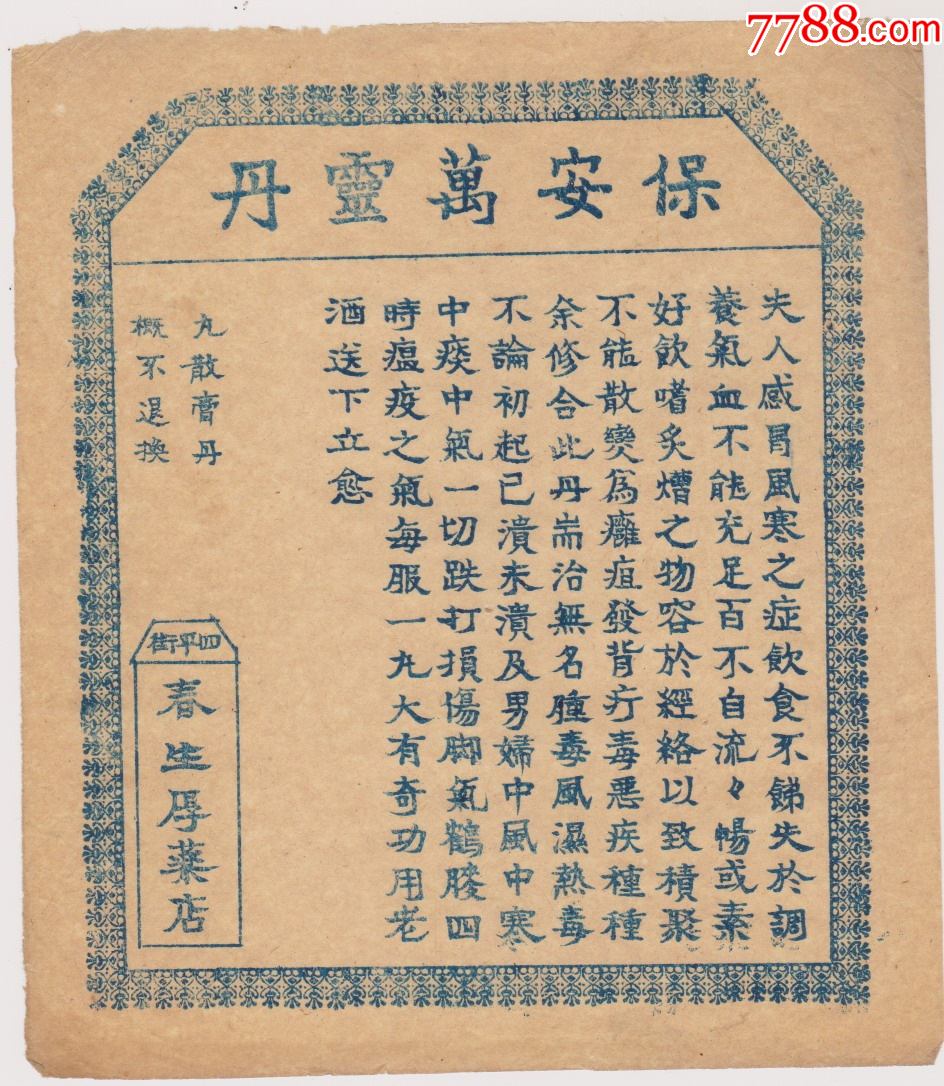 7788.com
保安萬靈丹
夫人感冒風寒之症飲食不銻失於調
養氣血不能充足百不自流々暢或素
好飲嗜炙熷之物容於經絡以致積聚
不能散變為癰疽發背疔毒惡疾種種
余修合此丹耑治無名腫毒風濕熱毒
不論初起已潰未潰及男婦中風中寒
中痰中氣一切跌打損傷脚氣鶴膝四
時瘟疫之氣每服一丸大有奇功用老
酒送下立愈
丸散膏丹
概不退換
四平街
春生厚藥店